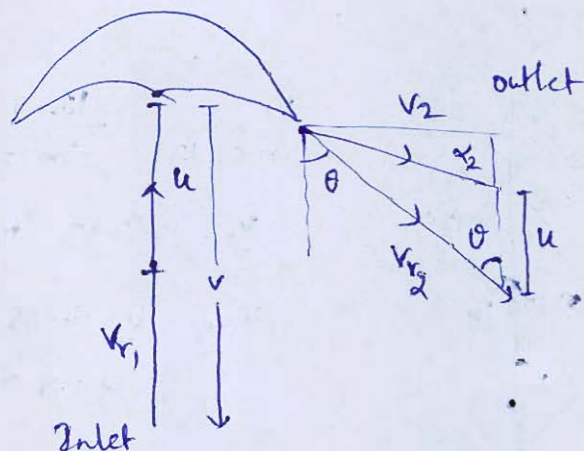 outlet
V2
α2
u
θ
θ
u
V
Vr2
Vr1
Inlet